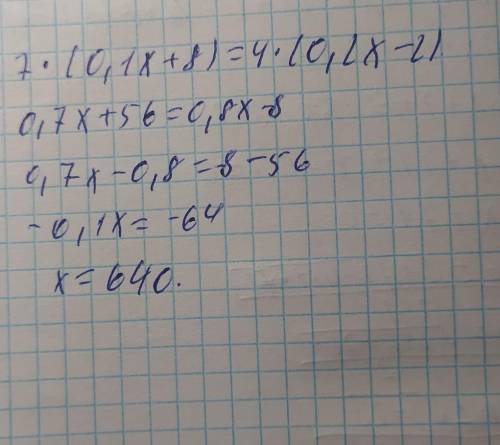 7·(0,1x+8)=4·(0,2x-2)
0,7x+56=0,8x-8
0,7x-0,8=-8-56
-0,1x=-64
x=640.